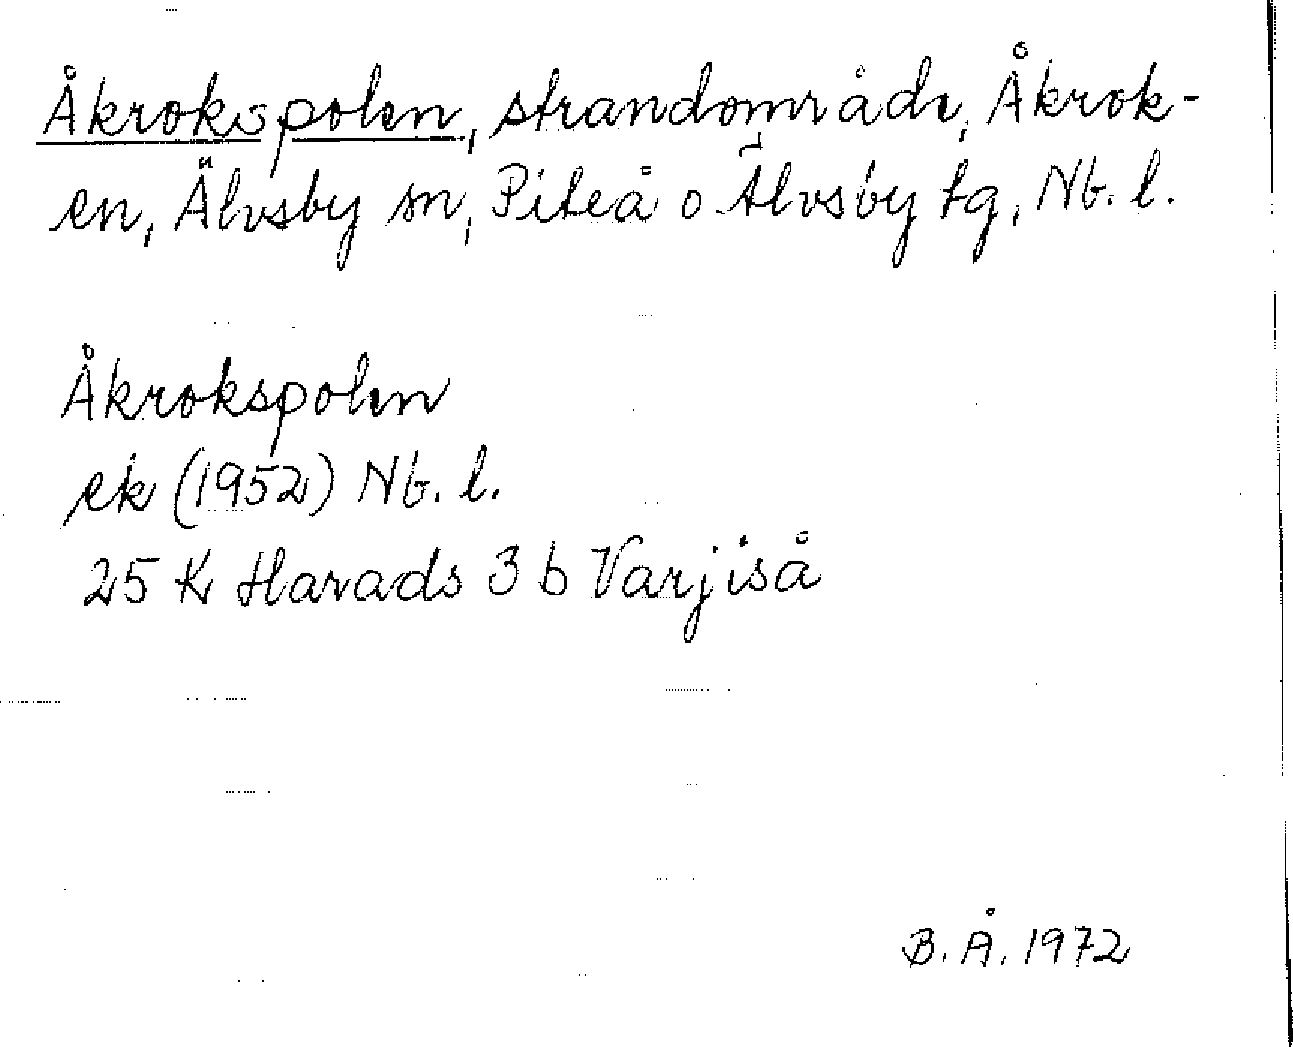 Åkrokspolen, strandområde, Åkrok-
en, Älvsby sn, Piteå o Älvsby tg, Nb. l.
Åkrokspolen
ek (1952) Nb. l.
25 K Harads 3 b Varjiså
B. Å. 1972